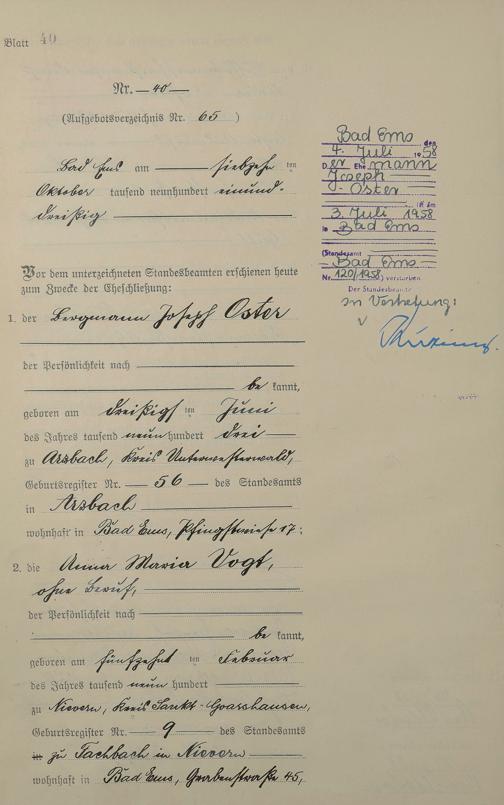 Blatt 40
Nr. — 40 —
(Aufgebotsverzeichnis Nr. 65 )
Bad Ems am siebzehn ten
Oktober tausend neunhundert einund-
dreißig
Vor dem unterzeichneten Standesbeamten erschienen heute
zum Zwecke der Eheschließung:
1. der Bergmann Joseph Oster
der Persönlichkeit nach
be kannt,
geboren am dreißigs ten Juni
des Jahres tausend neun hundert drei
zu Arzbach, Kreis Unterwesterwald,
Geburtsregister Nr. — 56 — des Standesamts
in Arzbach
wohnhaft in Bad Ems, Pfingstwiese 17;
2. die Anna Maria Vogt,
ohne Beruf,
der Persönlichkeit nach
be kannt,
geboren am fünfzehn ten Februar
des Jahres tausend neun hundert
zu Nievern, Kreis Sankt-Goarshausen,
Geburtsregister Nr. — 9 — des Standesamts
in zu Fachbach in Nievern
wohnhaft in Bad Ems, Grabenstraße 45,
Bad Ems den
4. Juli 1958
Der Ehemann
Joseph
Oster
ist am
3. Juli 1958
in Bad Ems
(Standesamt
Bad Ems
Nr. 120/1958) verstorben
Der Standesbeamte
In Vertretung: